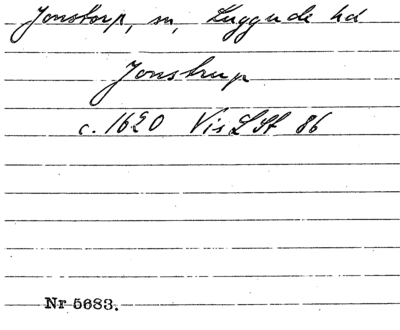 Jonstorp, sn, Luggude hd
Jonstrup
c. 1620 Vis LSt 86
Nr 5683.